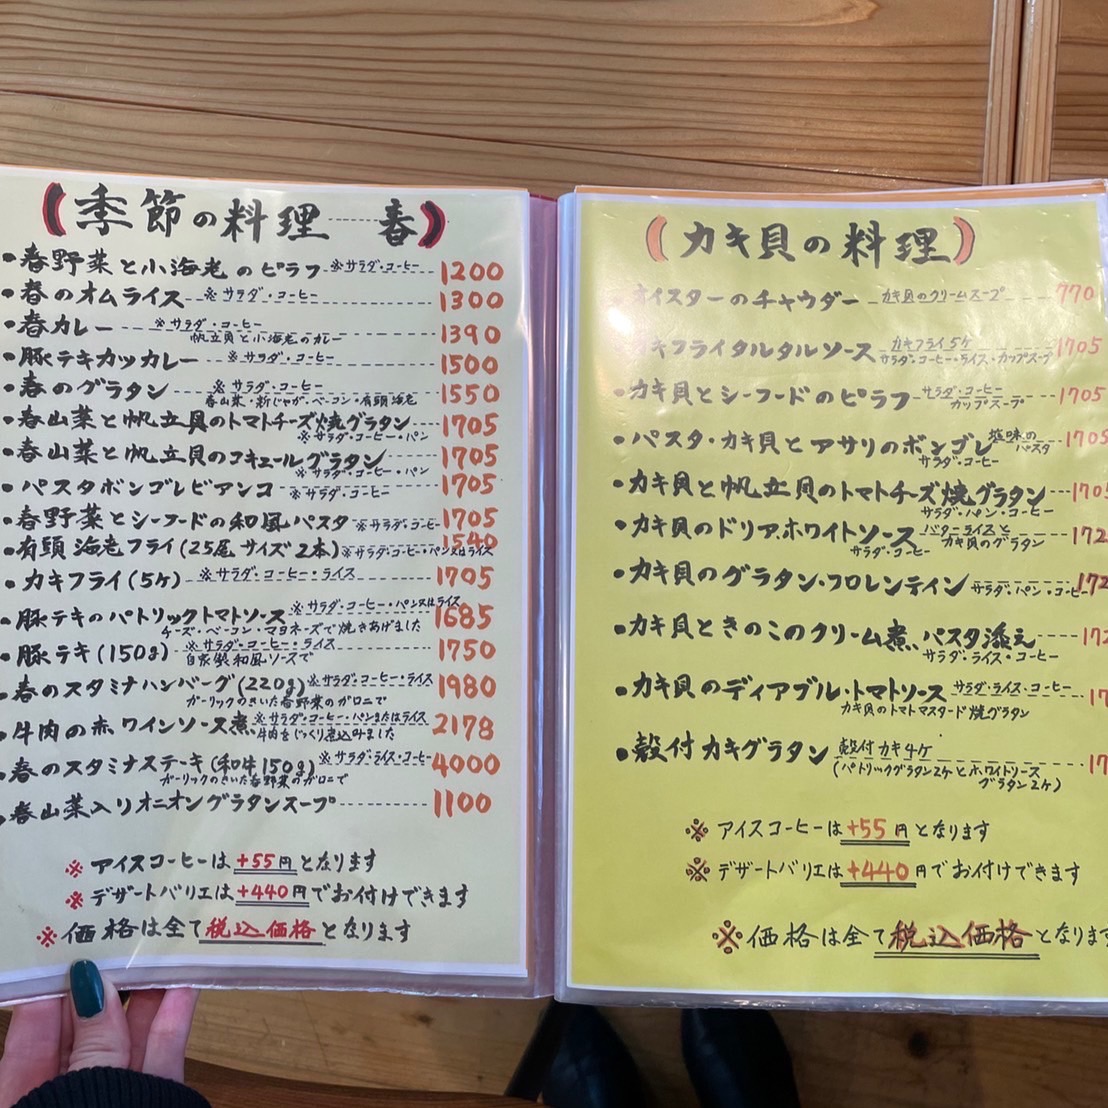 (季節の料理 春)
・春野菜と小海老のピラフ ※サラダ・コーヒー 1200
・春のオムライス ※サラダ・コーヒー 1300
・春カレー ※サラダ・コーヒー 1390
帆立貝と小海老のカレー
・豚テキカツカレー ※サラダ・コーヒー 1500
・春のグラタン ※サラダ・コーヒー 1550
春山菜・新じゃが・ベーコン・有頭海老
・春山菜と帆立貝のトマトチーズ焼グラタン 1705
※サラダ・コーヒー・パン
・春山菜と帆立貝のコキュールグラタン 1705
※サラダ・コーヒー・パン
・パスタボンゴレビアンコ ※サラダ・コーヒー 1705
・春野菜とシーフードの和風パスタ ※サラダ・コーヒー 1705
・有頭海老フライ(25尾サイズ2本) ※サラダ・コーヒー・パン又はライス 1540
・カキフライ(5ケ) ※サラダ・コーヒー・ライス 1705
・豚テキのパトリックトマトソース ※サラダ・コーヒー・パン又はライス 1685
チーズ・ベーコン・マヨネーズで焼きあげました
・豚テキ(150g) ※サラダ・コーヒー・ライス 1750
自家製和風ソースで
・春のスタミナハンバーグ(220g) ※サラダ・コーヒー・ライス 1980
ガーリックのきいた春野菜のガロニで
・牛肉の赤ワインソース煮 ※サラダ・コーヒー・パンまたはライス 2178
牛肉をじっくり煮込みました
・春のスタミナステーキ(和牛150g) ※サラダ・ライス・コーヒー 4000
ガーリックのきいた春野菜のガロニで
・春山菜入りオニオングラタンスープ 1100
※アイスコーヒーは+55円となります
※デザートバリエは+440円でお付けできます
※価格は全て税込価格となります
(カキ貝の料理)
・オイスターのチャウダー カキ貝のクリームスープ 770
キフライタルタルソース カキフライ5ケ 1705
サラダ・コーヒー・ライス・カップスープ
・カキ貝とシーフードのピラフ サラダ・コーヒー 1705
カップスープ
・パスタ・カキ貝とアサリのボンゴレ 塩味のパスタ 1705
サラダ・コーヒー
・カキ貝と帆立貝のトマトチーズ焼グラタン 1705
サラダ・パン・コーヒー
・カキ貝のドリア、ホワイトソース バターライスとカキ貝のグラタン 172
サラダ・コーヒー
・カキ貝のグラタン・フロレンティン 172
サラダ・パン・コーヒー
・カキ貝ときのこのクリーム煮、パスタ添え 172
サラダ・ライス・コーヒー
・カキ貝のディアブル・トマトソース サラダ・ライス・コーヒー 17
カキ貝のトマトマスタード焼グラタン
・殻付カキグラタン 殻付カキ4ケ 17
(パトリックグラタン2ケとホワイトソース
グラタン2ケ)
※アイスコーヒーは+55円となります
※デザートバリエは+440円でお付けできます
※価格は全て税込価格となります